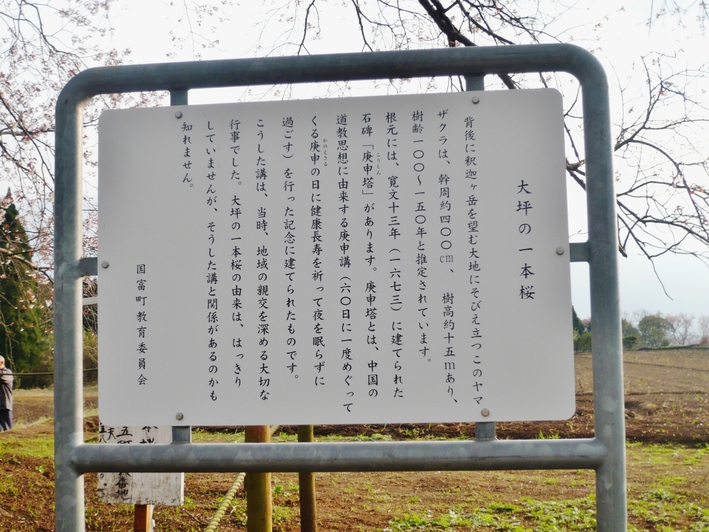 大坪の一本桜
背後に釈迦ヶ岳を望む大地にそびえ立つこのヤマ
ザクラは、幹周約四〇〇㎝、樹高約十五ｍあり、
樹齢一〇〇～一五〇年と推定されています。
根元には、寛文十三年（一六七三）に建てられた
石碑「庚申塔」があります。庚申塔とは、中国の
道教思想に由来する庚申講（六〇日に一度めぐって
くる庚申の日に健康長寿を祈って夜を眠らずに
過ごす）を行った記念に建てられたものです。
こうした講は、当時、地域の親交を深める大切な
行事でした。大坪の一本桜の由来は、はっきり
していませんが、そうした講と関係があるのかも
知れません。
国富町教育委員会